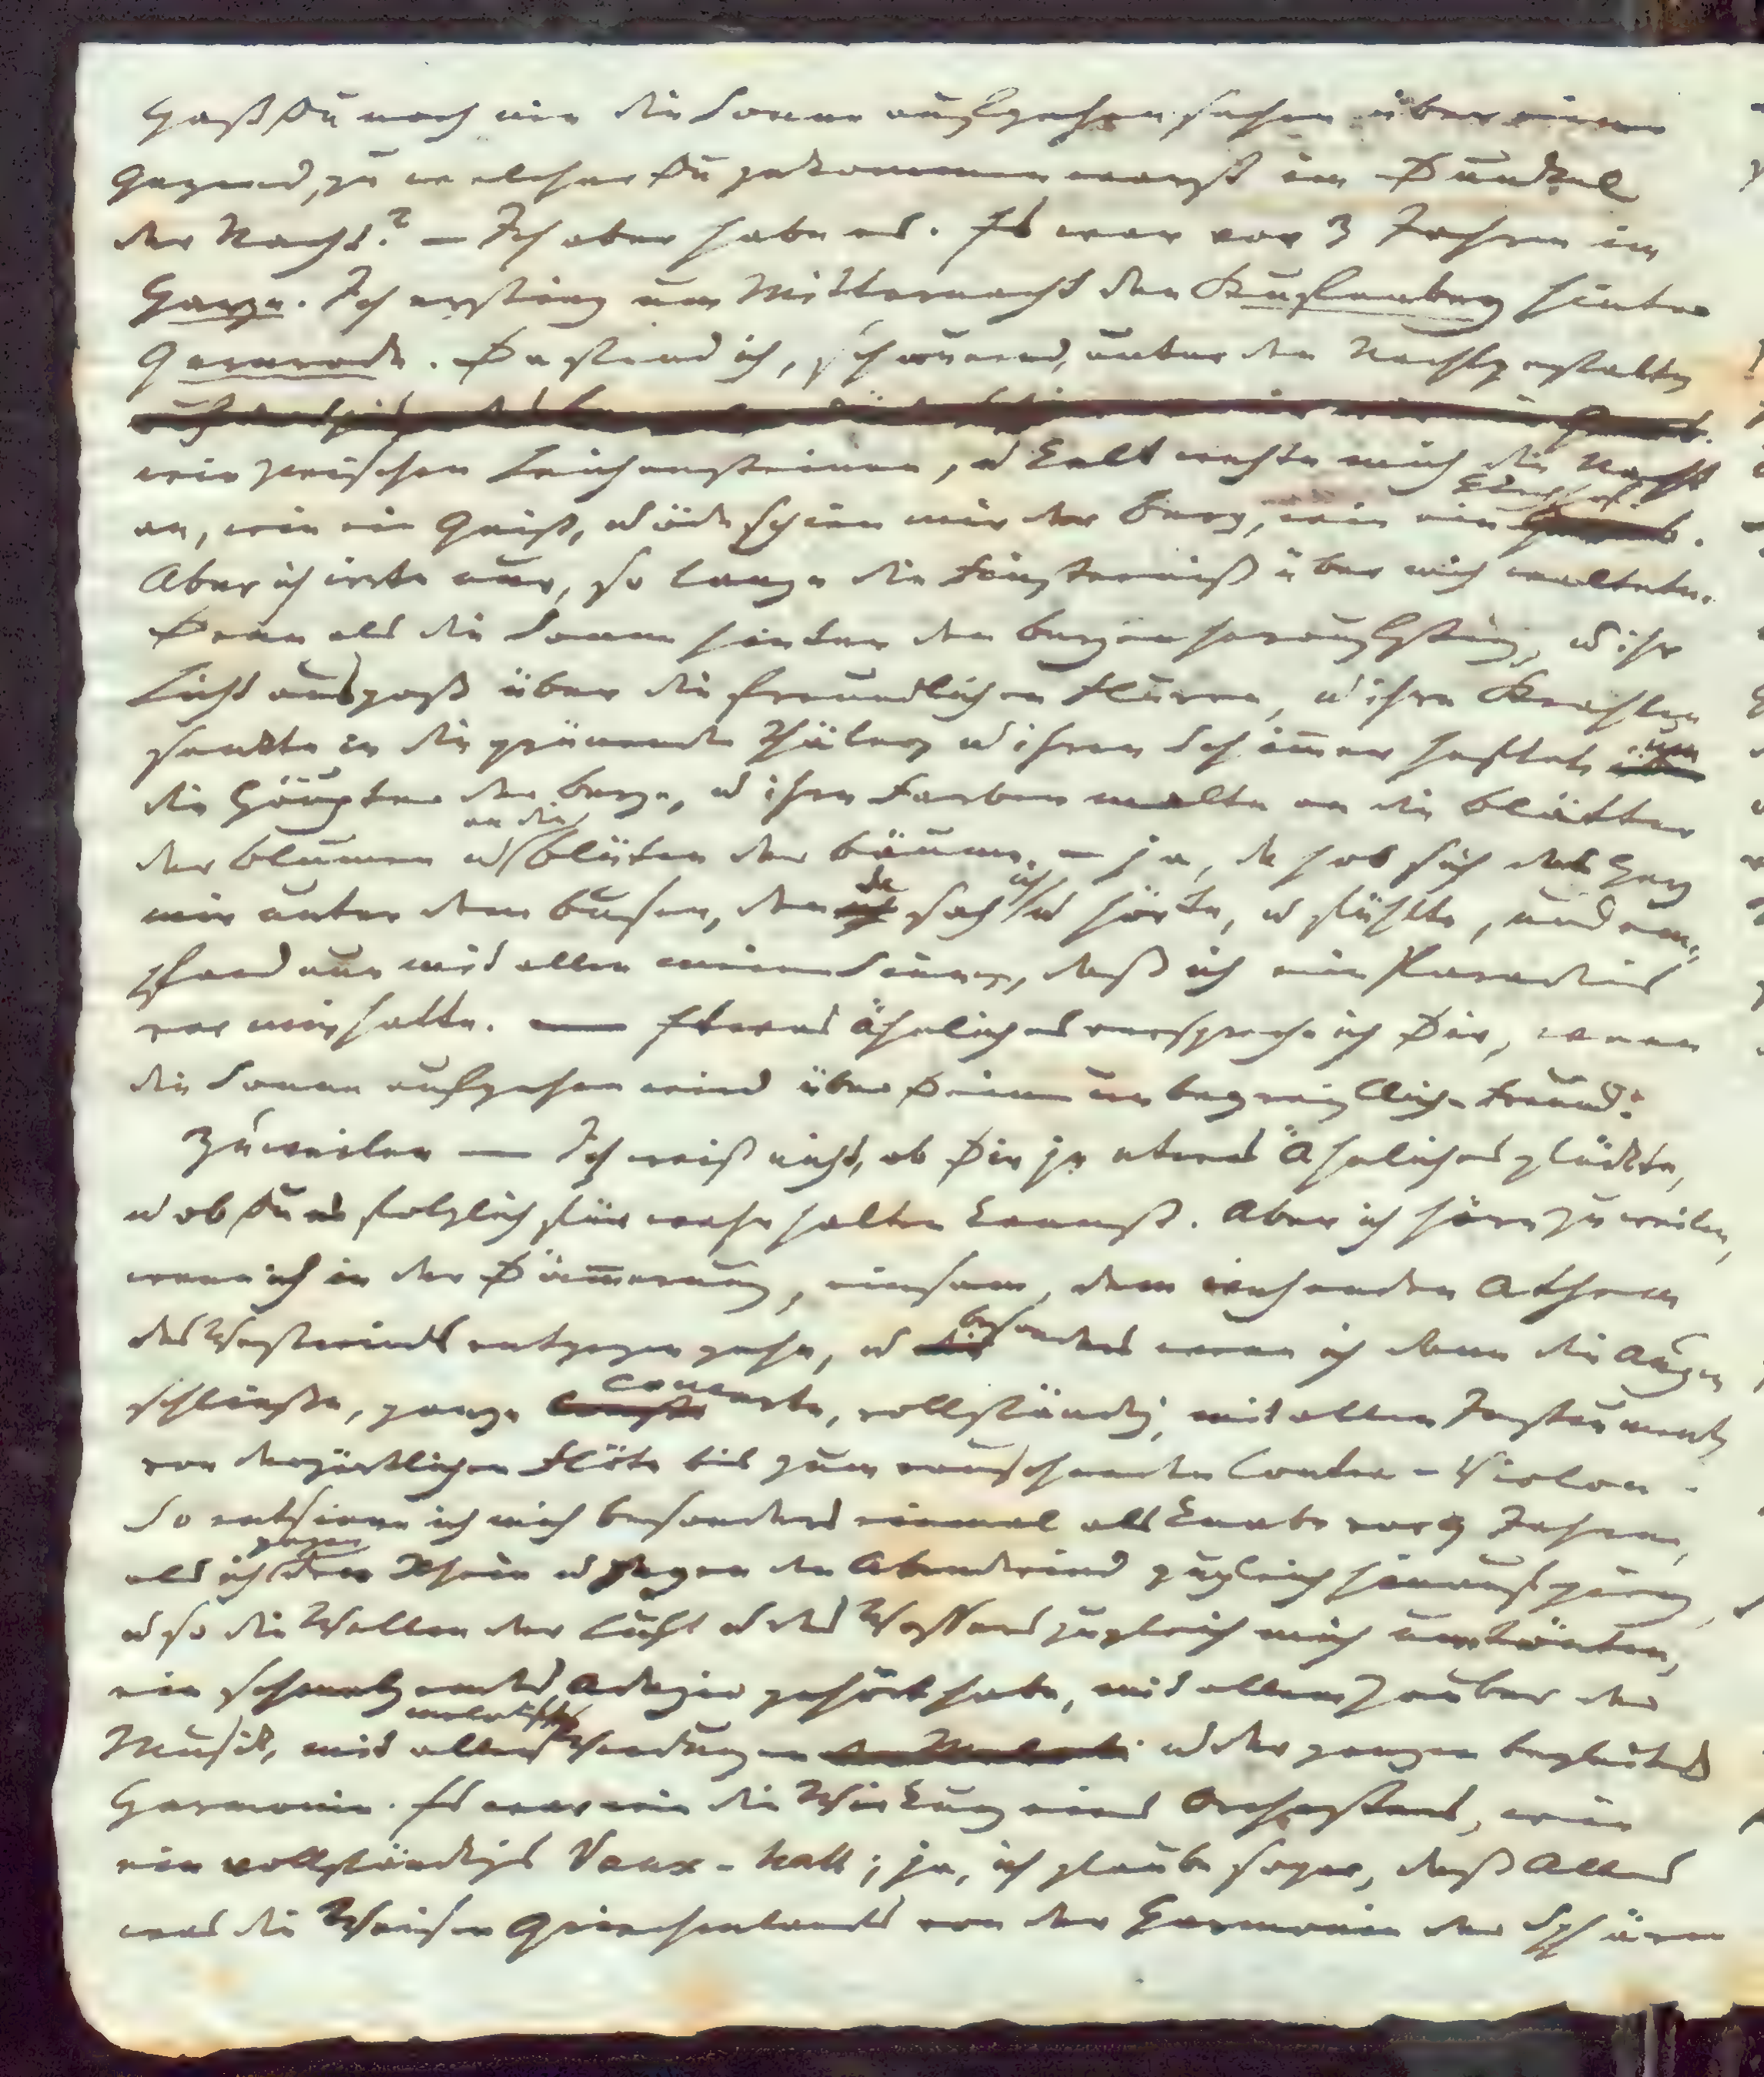 Hast Du noch nie die Sonne aufgehen sehen über eine
Gegend, zu welcher Du gekommen warst im Dunkel
der Nacht? — Ich aber habe es. Es war vor 3 Jahren im
Harze. Ich erstieg um Mitternacht den Stufenberg hinter
Gernrode. Da stand ich, schauernd, unter den Nachtgestalten
wie zwischen Leichensteinen, u kalt wehte mich die Nacht
an, wie ein Geist, u öde schien mir der Berg, wie ein Kirchhof.
Aber ich irrte nur, so lange die Finsterniß über mich waltete.
Denn als die Sonne hinter den Bergen heraufstieg, u ihr
Licht ausgoß über die freundlichen Fluren, u ihre Strahlen
senkte in die grünenden Thäler, u ihren Schimmer heftete um
die Häupter der Berge, u ihre Farben malte an die Blätter
der Blumen u an die Blüten der Bäume, — ja, da hob sich das Herz
mir unter dem Busen, denn da sah ich u hörte, u fühlte, und em-
pfand nun mit allen meinen Sinnen, daß ich ein Paradies
vor mir hatte. — Etwas Ähnliches verspreche ich Dir, wenn
die Sonne aufgehen wird über Deinen unbegreiflichen Freund.
Zuweilen — Ich weiß nicht, ob Dir je etwas Ähnliches glückte,
u ob Du es folglich für wahr halten kannst. Aber ich höre zuweilen,
wenn ich in der Dämmerung, einsam, dem wehenden Athem
des Westwinds entgegen gehe, u besonders wenn ich dann die Augen
schließe, ganze Concerte, vollständig, mit allen Instrumenten
von der zärtlichen Flöte bis zum rauschenden Contra-Violon.
So entsinne ich mich besonders einmal als Knabe vor 9 Jahren,
als ich gegen den Rhein u gegen den Abendwind zugleich hinaufging,
u so die Wellen der Luft u des Wassers zugleich mich umtönten,
ein schmelzendes Adagio gehört habe, mit allem Zauber der
Musik, mit allen melodischen Wendungen u der ganzen begleitenden
Harmonie. Es war wie die Wirkung eines Orchesters, wie
ein vollständiges Vaux-hall; ja, ich glaube sogar, daß Alles
was die Weisen Griechenlands von der Harmonie der Sphären